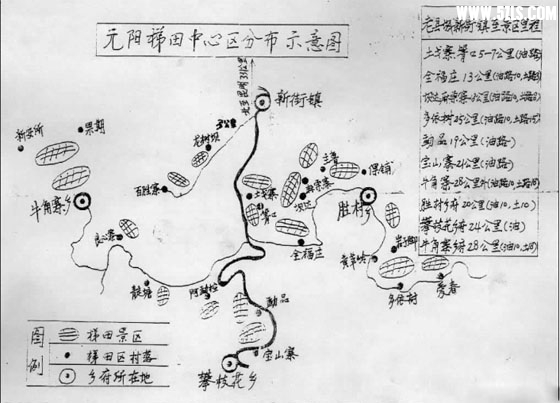 WWW.51JS.COM
元阳梯田中心区分布示意图
元县城新街镇至景区里程
土戈寨、箐口5-7公里(油路)
全福庄 13公里(油路10,土路3)
多依树25公里(油路10,土路15)
勐品 19公里(油路)
宝山寨21公里(油路)
牛角寨28公里
胜村乡府 20公里(油10,土10)
攀枝花乡府24公里(油)
牛角寨乡府28公里(油10,土18)
新街镇
3公里
龙树坝
百胜寨
新安所
果期
牛角寨乡
良心寨
龙塘
阿勐控
土戈寨
箐口
麻栗寨
坝达
主鲁
保铺
胜村乡
全福庄
黄草岭
多依树
爱春
勐品
宝山寨
攀枝花乡
图例
梯田景区
梯田区村落
乡府所在地